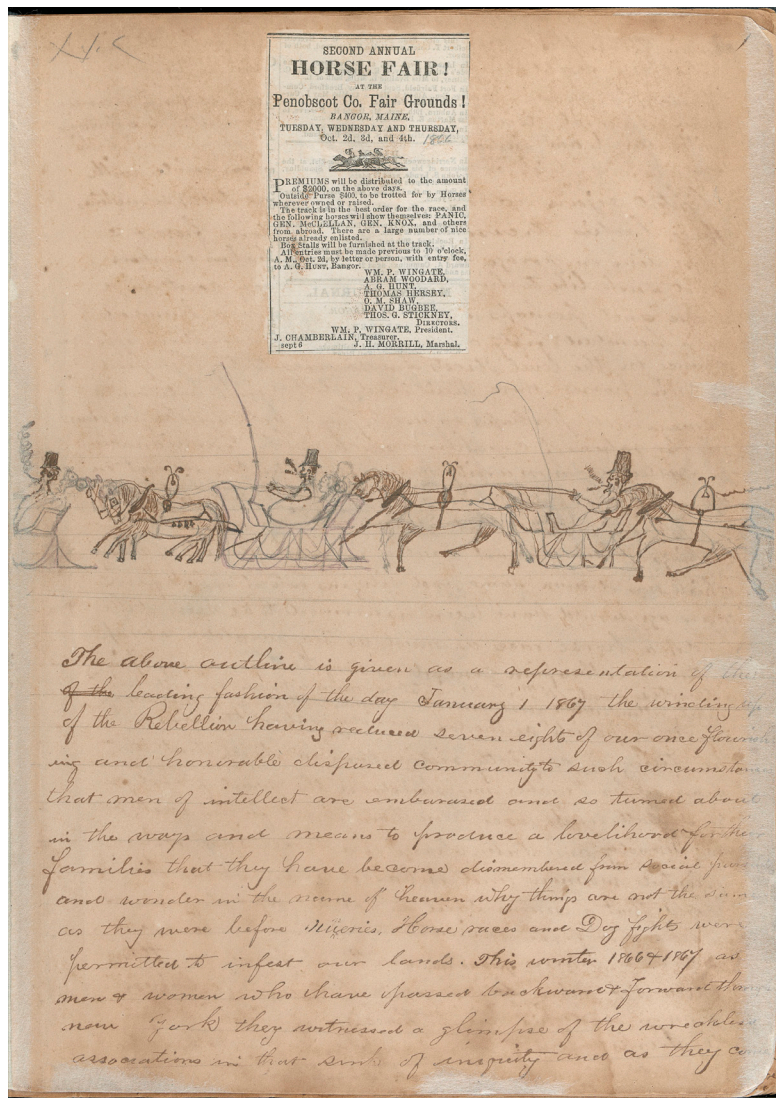 SECOND ANNUAL
HORSE FAIR!
AT THE
Penobscot Co. Fair Grounds!
BANGOR, MAINE,
TUESDAY, WEDNESDAY AND THURSDAY,
Oct. 2d, 3d, and 4th. 1866
PREMIUMS will be distributed to the amount
of $2000, on the above days.
Outside Purse $400, to be trotted for by Horses
wherever owned or raised.
The track is in the best order for the race, and
the following horses will show themselves: PANIC,
GEN. McCLELLAN, GEN. KNOX, and others
from abroad. There are a large number of nice
horses already enlisted.
Box Stalls will be furnished at the track.
All entries must be made previous to 10 o'clock,
A. M., Oct. 2d, by letter or person, with entry fee,
to A. G. HUNT, Bangor.
WM. P. WINGATE,
ABRAM WOODARD,
A. G. HUNT,
THOMAS HERSEY,
O. M. SHAW,
DAVID BUGBEE,
THOS. G. STICKNEY,
DIRECTORS.
WM. P. WINGATE, President.
J. CHAMBERLAIN, Treasurer.
sept 6 J. H. MORRILL, Marshal.
The above outline is given as a representation of
of the leading fashion of the day January 1 1867 the winding up
of the Rebellion having reduced seven eights of our once
ing and honorable disposed community to such
that men of intellect are embarased and so turned about
in the ways and means to produce a lovelihood for their
families that they have become dismembered from social
and wonder in the name of heaven why things are not the same
as they were before Horse races and Dog fights were
permitted to infest our lands. This winter 1866 & 1867 as
men & women who have passed backward & forward
new York they witnessed a glimpse of the
associations in that sink of iniquity and as they